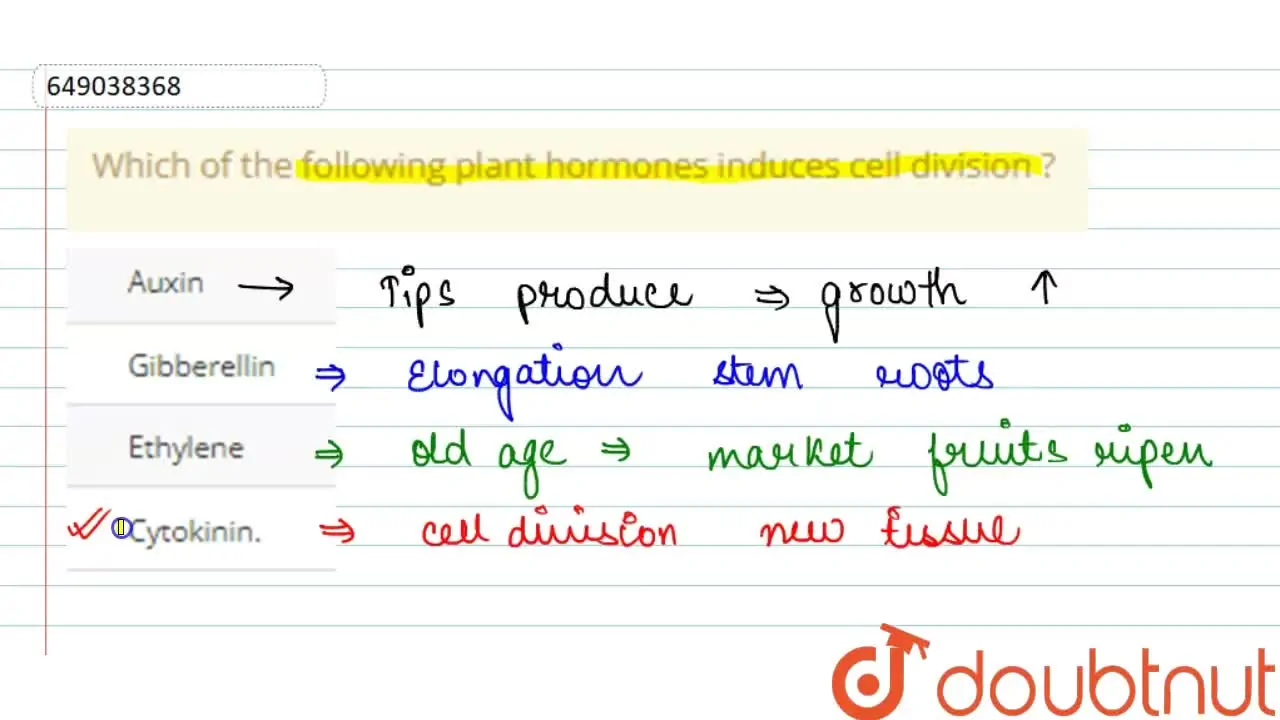 649038368
Which of the following plant hormones induces cell division ?
Auxin → Tips produce ⇒ growth ↑
Gibberellin ⇒ Elongation stem roots
Ethylene ⇒ old age ⇒ market fruits ripen
Cytokinin. ⇒ cell division new tissue
doubtnut